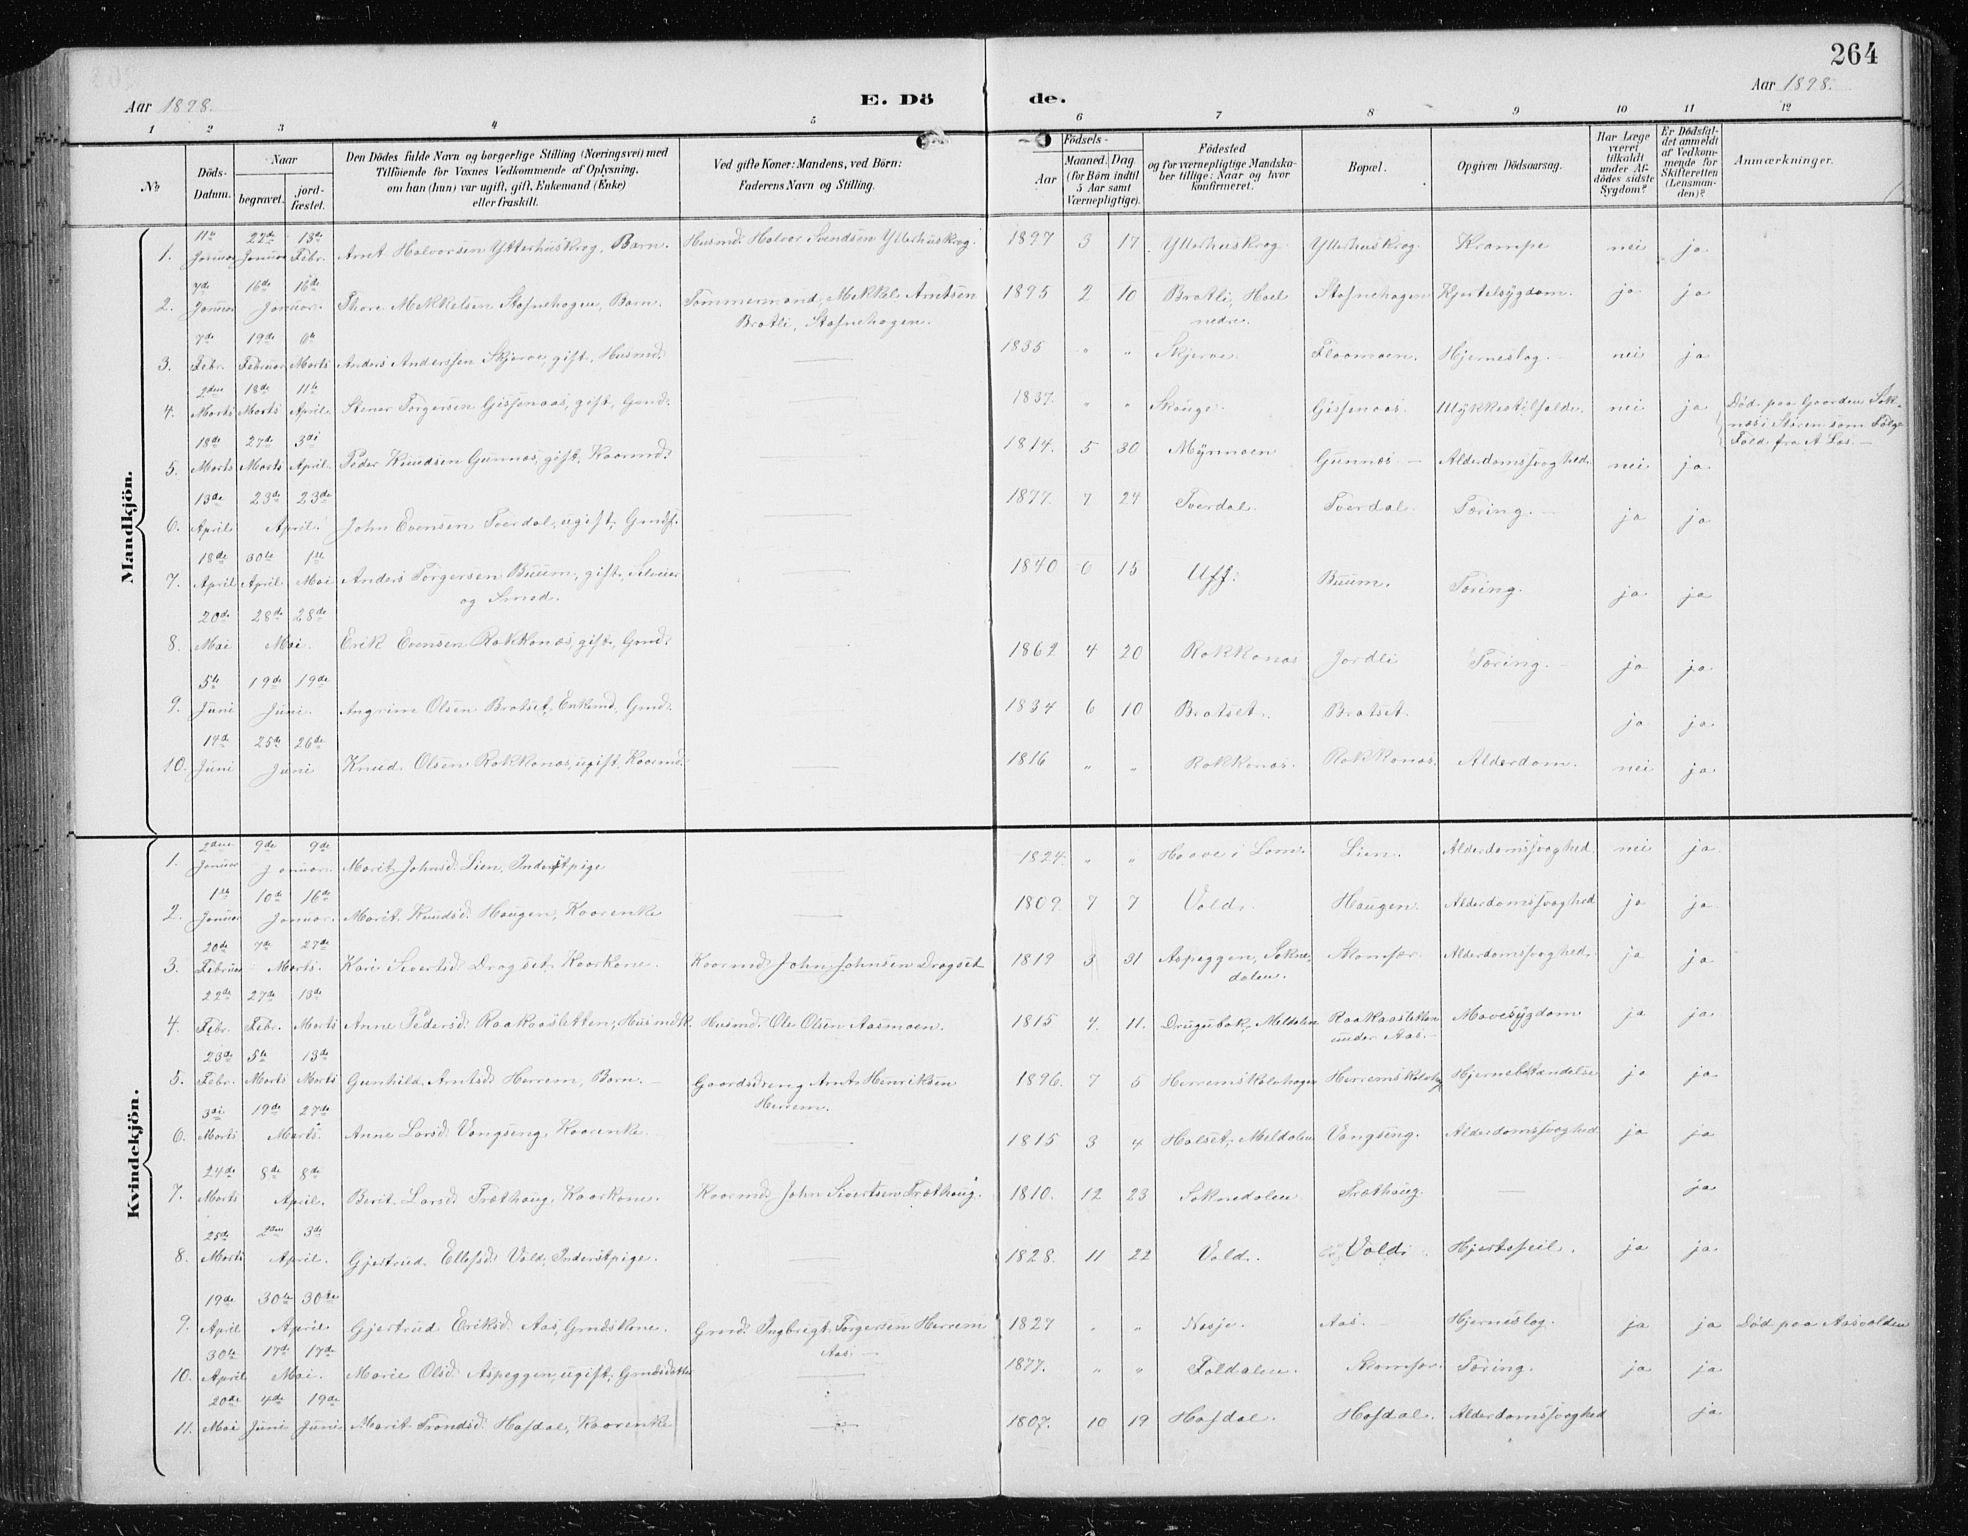 264
Aar 1898.
E. Dö
de.
Aar 1898.
1 2 3 4 5 6 7 8 9 10 11 12
No
Döds-Datum.
Naar
begravet.
jord-fæstet.
Den Dödes fulde Navn og borgerlige Stilling (Næringsvei) med
Tilföiende for Voxnes Vedkommende af Oplysning,
om han (hun) var ugift, gift, Enkemand (Enke)
eller fraskilt.
Ved gifte Koner: Mandens, ved Börn:
Faderens Navn og Stilling.
Födsels-
Aar
Maaned. Dag.
(for Börn indtil
5 Aar samt
Værnepligtige).
Födested
og for værnepligtige Mandska-
ber tillige: Naar og hvor
konfirmeret.
Bopæl.
Opgiven Dödsaarsag.
Har Læge
været
tilkaldt
under Af-
dödes sidste
Sygdom?
Er Dödsfal-
det anmeldt
af Vedkom-
mende for
Skifteretten
(Lensman-
den)?
Anmærkninger.
Mandkjön.
1. 11te Januar 22de Januar 13de Febr. Arnt Halvorsen Ytterhuskrog, Barn. Husmd. Halvor Svendsen Ytterhuskrog. 1897 3 17 Ytterhuskrog. Ytterhuskrog. Krampe nei ja
2. 7de Januar 16de 16de Januar. Thore Mekkelsen Stafnehagen, Barn. Tømmermand, Mekkel Arntsen 1895 2 10 Bratli, Hoel Stafnehagen Kjertelsygdom. ja ja
Bratli, Stafnehagen. nedre.
3. 7de Febr. 19de Februar 6te Marts Anders Anderssen Skjerve, gift, Husmd. 1835 " " Skjerve. Floamoen. Hjerneslag. nei ja
4. 2den Marts 18de Marts 11te April. Stener Torgersen Gisnaas, gift, Gmd. 1837. " " Skauge. Gisnaas. Ulykkestilfælde. nei ja Død paa Gaarden Sok-
næs i Støren som Følge
Fald fra A Las.
5. 18de Marts 27de Marts 3die April. Peder Knudsen Gunnes, gift, Kaarmd. 1814. 5 30 Myrmoen Gunnes. Alderdomssvaghed. nei ja
6. 13de April 23de 23de April. John Evensen Tverdal, ugift, Gmds. 1877. 7 24 Tverdal. Tverdal. Tæring. ja ja
7. 18de April 30te April 1ste Mai Anders Torgersen Buum, gift, Selveier 1840 6 15 Uff. Buum. Tæring. ja ja
og Smed.
8. 20de Mai 28de 28de Mai. Erik Evensen Rokkones, gift, Gmd. 1862 4 20 Rokkones Jordli Tæring. ja ja
9. 5te Juni 19de 19de Juni. Angrim Olsen Bratset, Enkemd, Gmd. 1834 6 10 Bratset. Bratset. ja ja
10. 14de Juni 25de 26de Juni Knud Olsen Rokkones, ugift, Kaarmd. 1816 " " Rokkones. Rokkones. Alderdom. nei ja
Kvindekjön.
1. 2den Januar 9de 9de Januar. Marit Johnsd. Lien, Inderstpige 1824. " " Haave i Lom. Lien. Alderdomssvaghed. nei ja
2. 1ste Januar 10de 16de Januar. Marit Knudsd. Haugen, Kaarenke 1809. 7 7 Vold. Haugen. Alderdomssvaghed ja ja
3. 20de Februar 7de 27de Marts. Kari Sivertsd. Dragset, Kaarkone. Kaarmd. John Johnsen Dragset 1819 3 31 Aspeggen, Sokne- Skamfær. Alderdomssvaghed. ja ja
dalen.
4. 22de Febr. 27de Febr. 13de Marts Anne Pedersd. Raakaasletten, Husmdk. Husmd. Ole Olsen Aasmoen. 1815 4. 11. Drugubak, Meldalen Raakaasletten Mavesygdom ja ja
under Aas.
5. 23de Febr. 5te Marts 13de Marts Gunhild Arntsd. Herrem, Barn. Gaardsdreng Arnt Henriksen 1896. 7 5 Herremskolehagen Herremskolehg Hjernebetændelse ja ja
Herrem.
6. 3die Marts 19de 27de Marts. Anne Larsd. Vangsing, Kaarenke. 1815 3 4 Halset, Meldalen Vangsing. Alderdomssvaghed ja ja
7. 24de Marts 8de 8de April. Berit Larsd. Træthaug, Kaarkone. Kaarmd. John Sivertsen Træthaug. 1810. 12 23 Soknedalen Træthaug. ja
8. 25de Marts 2den 3die April. Gjertrud Ellefsd. Vold, Inderstpige. 1828. 11 22 Vold. Vold. Hjertefeil. ja ja
9. 19de April 30te 30te April. Gjertrud Eriksd. Aas, Gmdskone. Gmd. Ingbrigt Torgersen Herrem 1827 " " Nesje. Aas. Hjerneslag. ja ja Død paa Aasvolden
Aas.
10. 30te April 17de 17de Mai. Marie Olsd. Aspeggen, ugift, Gmdsdatter 1877. " " Foldalen. Skamfær. Tæring. ja ja
11. 20de Mai 4de Juni 19de Juni Marit Trondsd. Hafdal, Kaarenke 1807. 10 19 Hafdal. Hafdal. Alderdomssvaghed ja